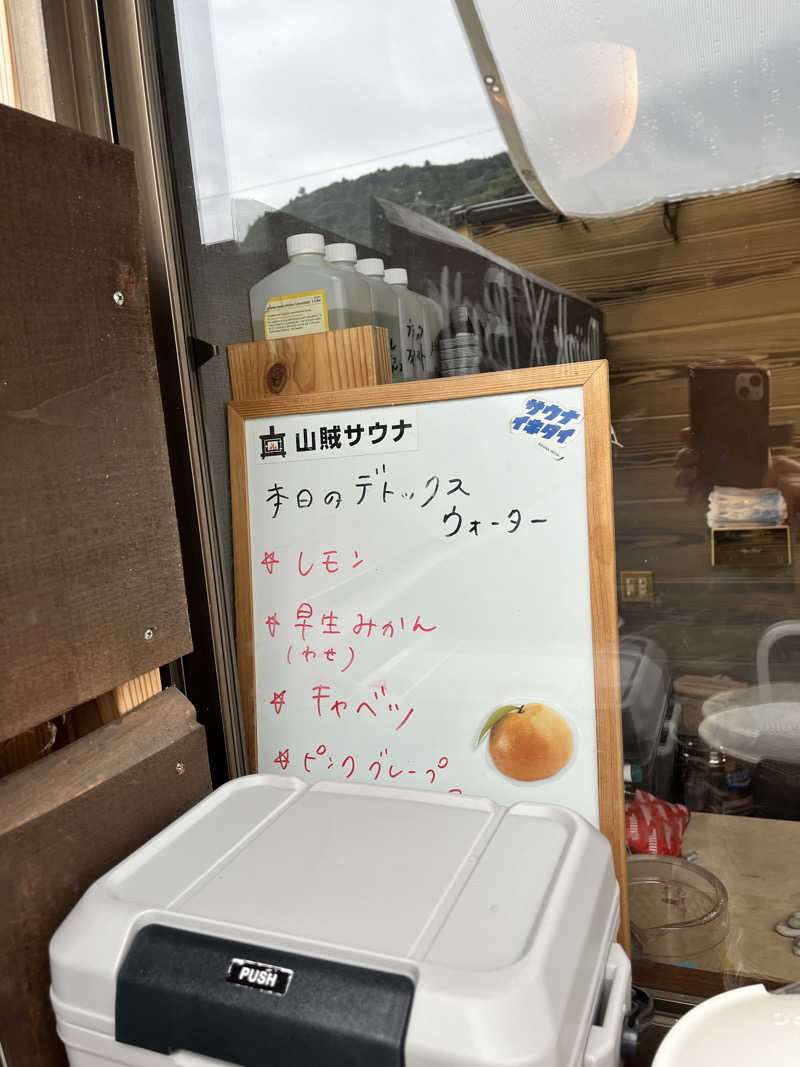 山賊サウナ
サウナ
イキタイ
本日のデトックス
ウォーター
☆ レモン
☆ 早生みかん
(わせ)
☆ キャベツ
☆ ピンクグレープ
PUSH